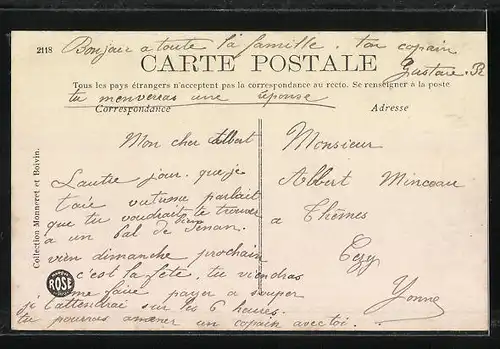 2118
Bonjour a toute la famille. ton copain
Gustave. R
CARTE POSTALE
Tous les pays étrangers n'acceptent pas la correspondance au recto. Se renseigner à la poste
tu menverras une réponse
Correspondance
Adresse
Mon cher Albert
Lautre jour que je
t'aie vu tume parlait
que tu voudrait te trouver
a un bal de Senan.
vien dimanche prochain
c'est la fête, tu viendras
me faire payer a souper
je t'attendrai sur les 6 heures.
tu pourras amener un copain avec toi.
Monsieur
Albert Minceau
a Thèmes
Cézy
Yonne
Collection Monneret et Boivin.
MARQUE
ROSE